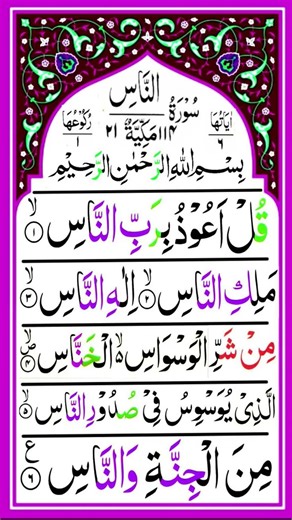 النَّاسِ
سُوْرَةُ
اٰيَاتُهَا ٦ ١١٤ مَكِّيَّةٌ ٢١ رُكُوْعُهَا ١
بِسْمِ اللهِ الرَّحْمٰنِ الرَّحِيْمِ
قُلْ اَعُوْذُ بِرَبِّ النَّاسِ ۙ﴿١﴾
مَلِكِ النَّاسِ ۙ﴿٢﴾ اِلٰهِ النَّاسِ ۙ﴿٣﴾
مِنْ شَرِّ الْوَسْوَاسِ ۙ۬ الْخَنَّاسِ ۪ۙ﴿٤﴾
الَّذِيْ يُوَسْوِسُ فِيْ صُدُوْرِ النَّاسِ ۙ﴿٥﴾
مِنَ الْجِنَّةِ وَالنَّاسِ ﴿٦﴾ ع